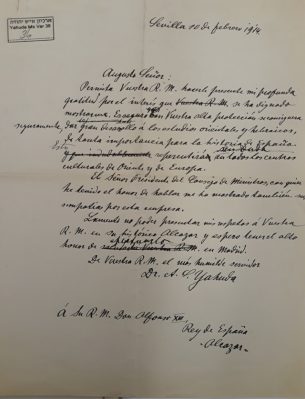 ארכיון א"ש יהודה
Yahuda Ms Var 38
Sevilla 10 de febrero 1914.
Augusto Señor:
Permita Vuestra R. M. hacerle presente mi profunda
gratitud por el interés que Vuestra R. M. se ha dignado
mostrarme. Con Vuestra alta protección se conseguirá
seguramente, dar gran desarrollo a los estudios orientales y hebraicos,
de tanta importancia para la historia de España.
Esto repercutirá en todos los centros
culturales de Oriente y de Europa.
El Señor Presidente del Consejo de Ministros, con quien
he tenido el honor de hablar me ha mostrado también su
simpatías por esta empresa.
Lamento no poder presentar mis respetos á Vuestra
R. M. en su histórico Alcázar y espero tener el alto
honor de en Madrid.
De Vuestra R. M. el más humilde servidor
Dr. A. S. Yahuda
Á Su R. M. Don Alfonso XIII,
Rey de España
-Alcázar-